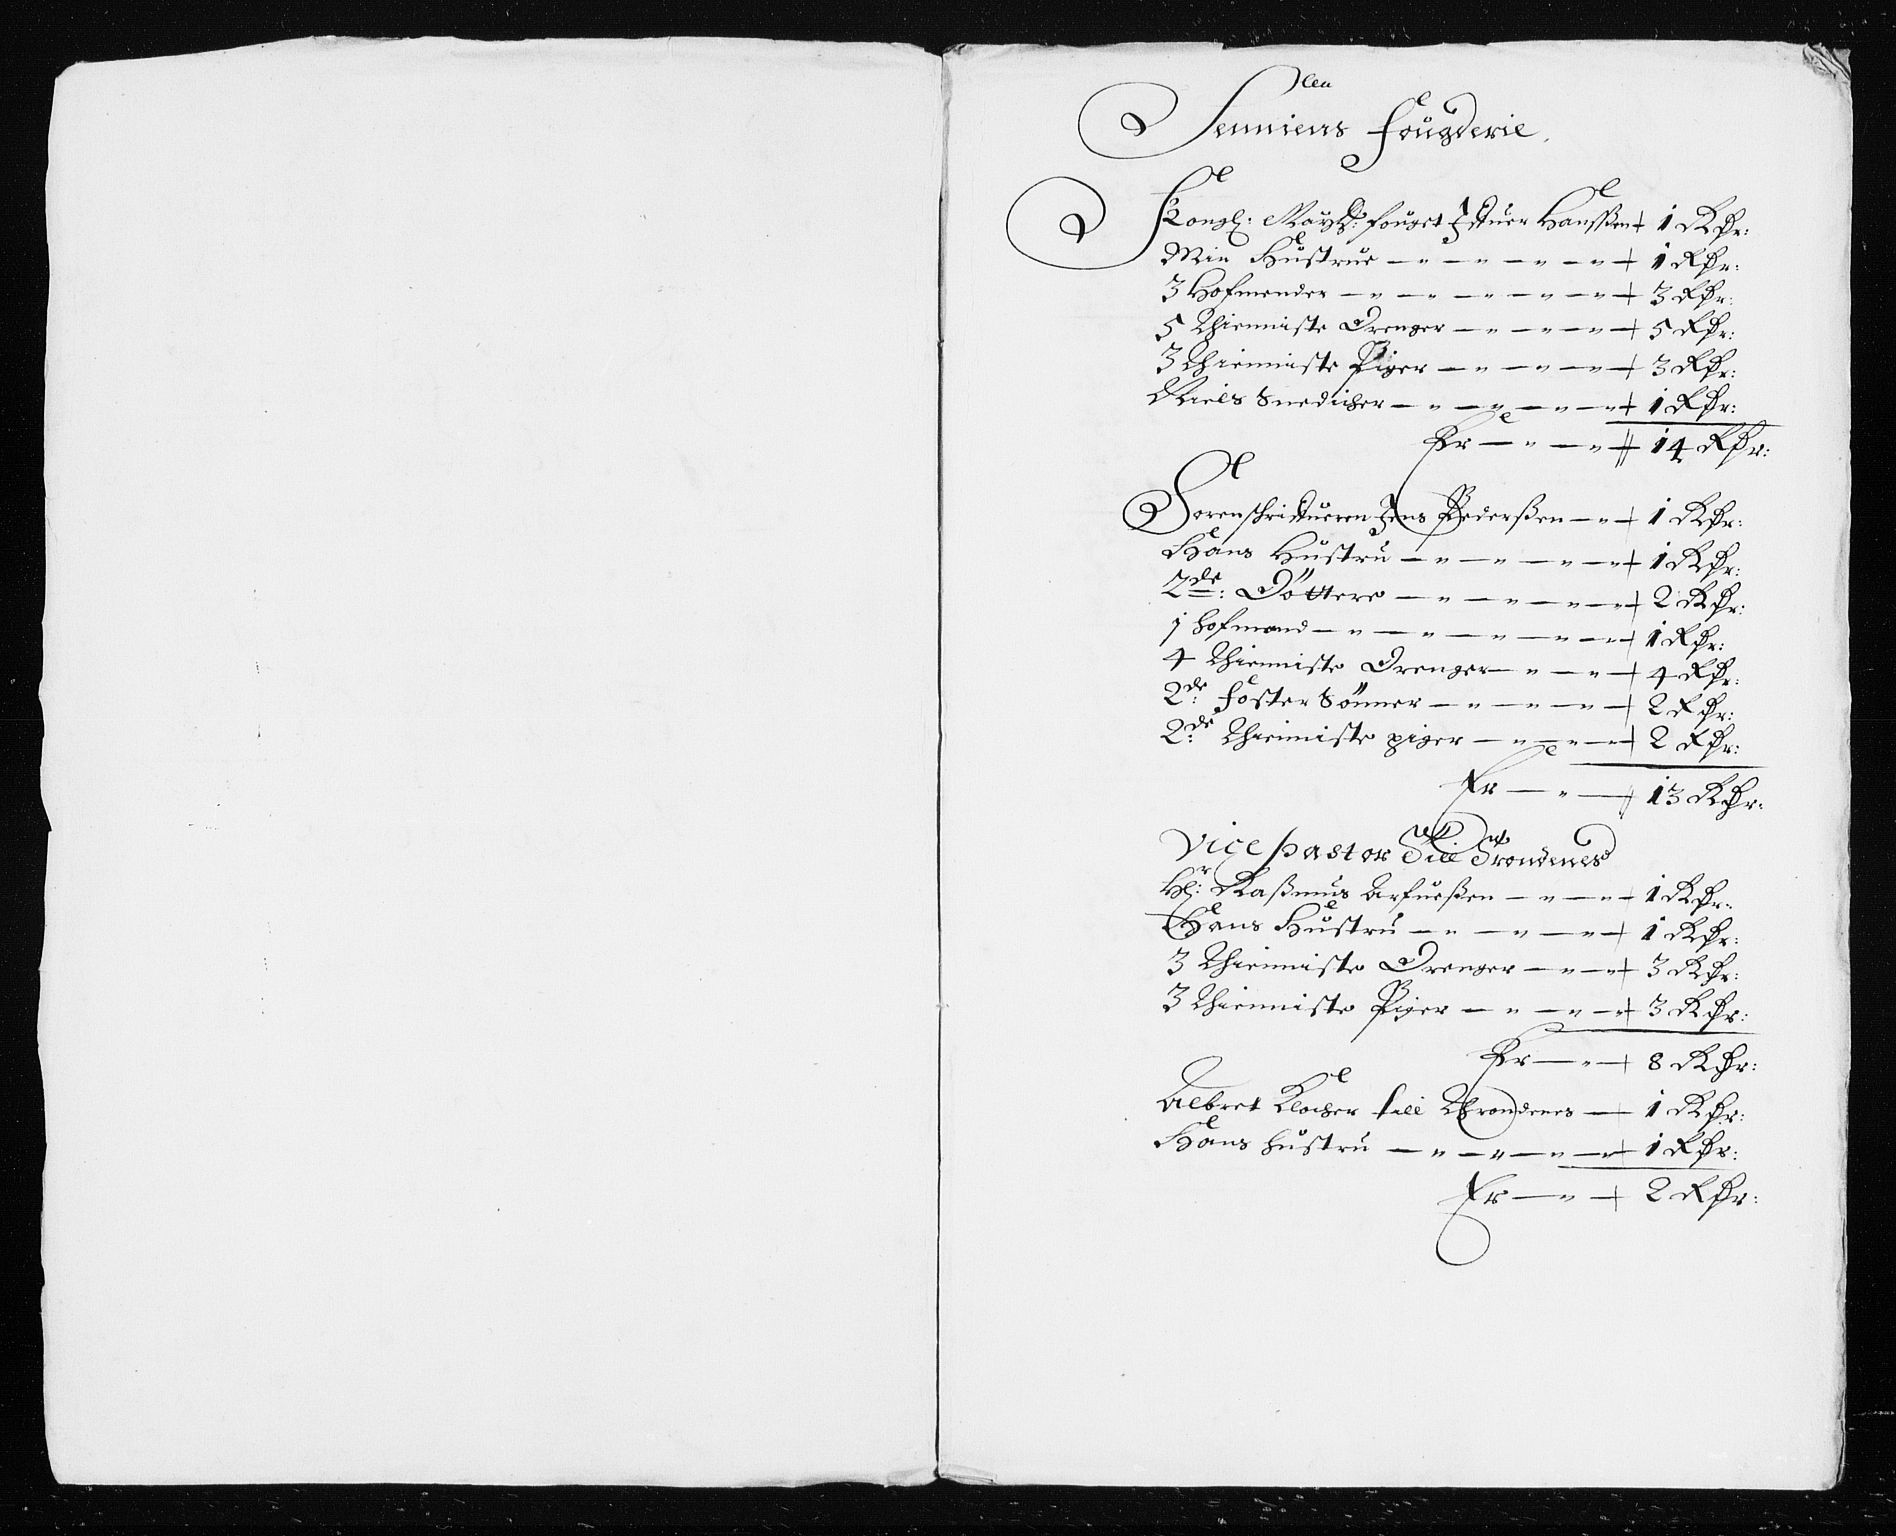 Senniens Fougderie.
Kongl: Mayts: fouget Iffuer Hanssen 1 Rdr:
Min Hustrue 1 Rdr:
3 Hofmender 3 Rdr:
5 Thienniste Drenger 5 Rdr:
3 Thienniste Piger 3 Rdr:
Niels Snedicher 1 Rdr:
Er 14 Rdr:
Sorenschriffueren Jens Pederßen 1 Rdr:
Hans Hustru 1 Rdr:
2de: Döttere 2 Rdr:
1 hofmand 1 Rdr:
4 Thienniste Drenger 4 Rdr:
2de: foster Sönner 2 Rdr:
2de: Thienniste piger 2 Rdr:
Er 13 Rdr:
Vice pastor Till Trondenes
Hr: Raßmus Arfueßen 1 Rdr:
Hans Hustru 1 Rdr:
3 Thienniste Drenger 3 Rdr:
3 Thienniste Piger 3 Rdr:
Er 8 Rdr:
Albret Klocher till Throndenes 1 Rdr:
Hans hustru 1 Rdr:
Er 2 Rdr: